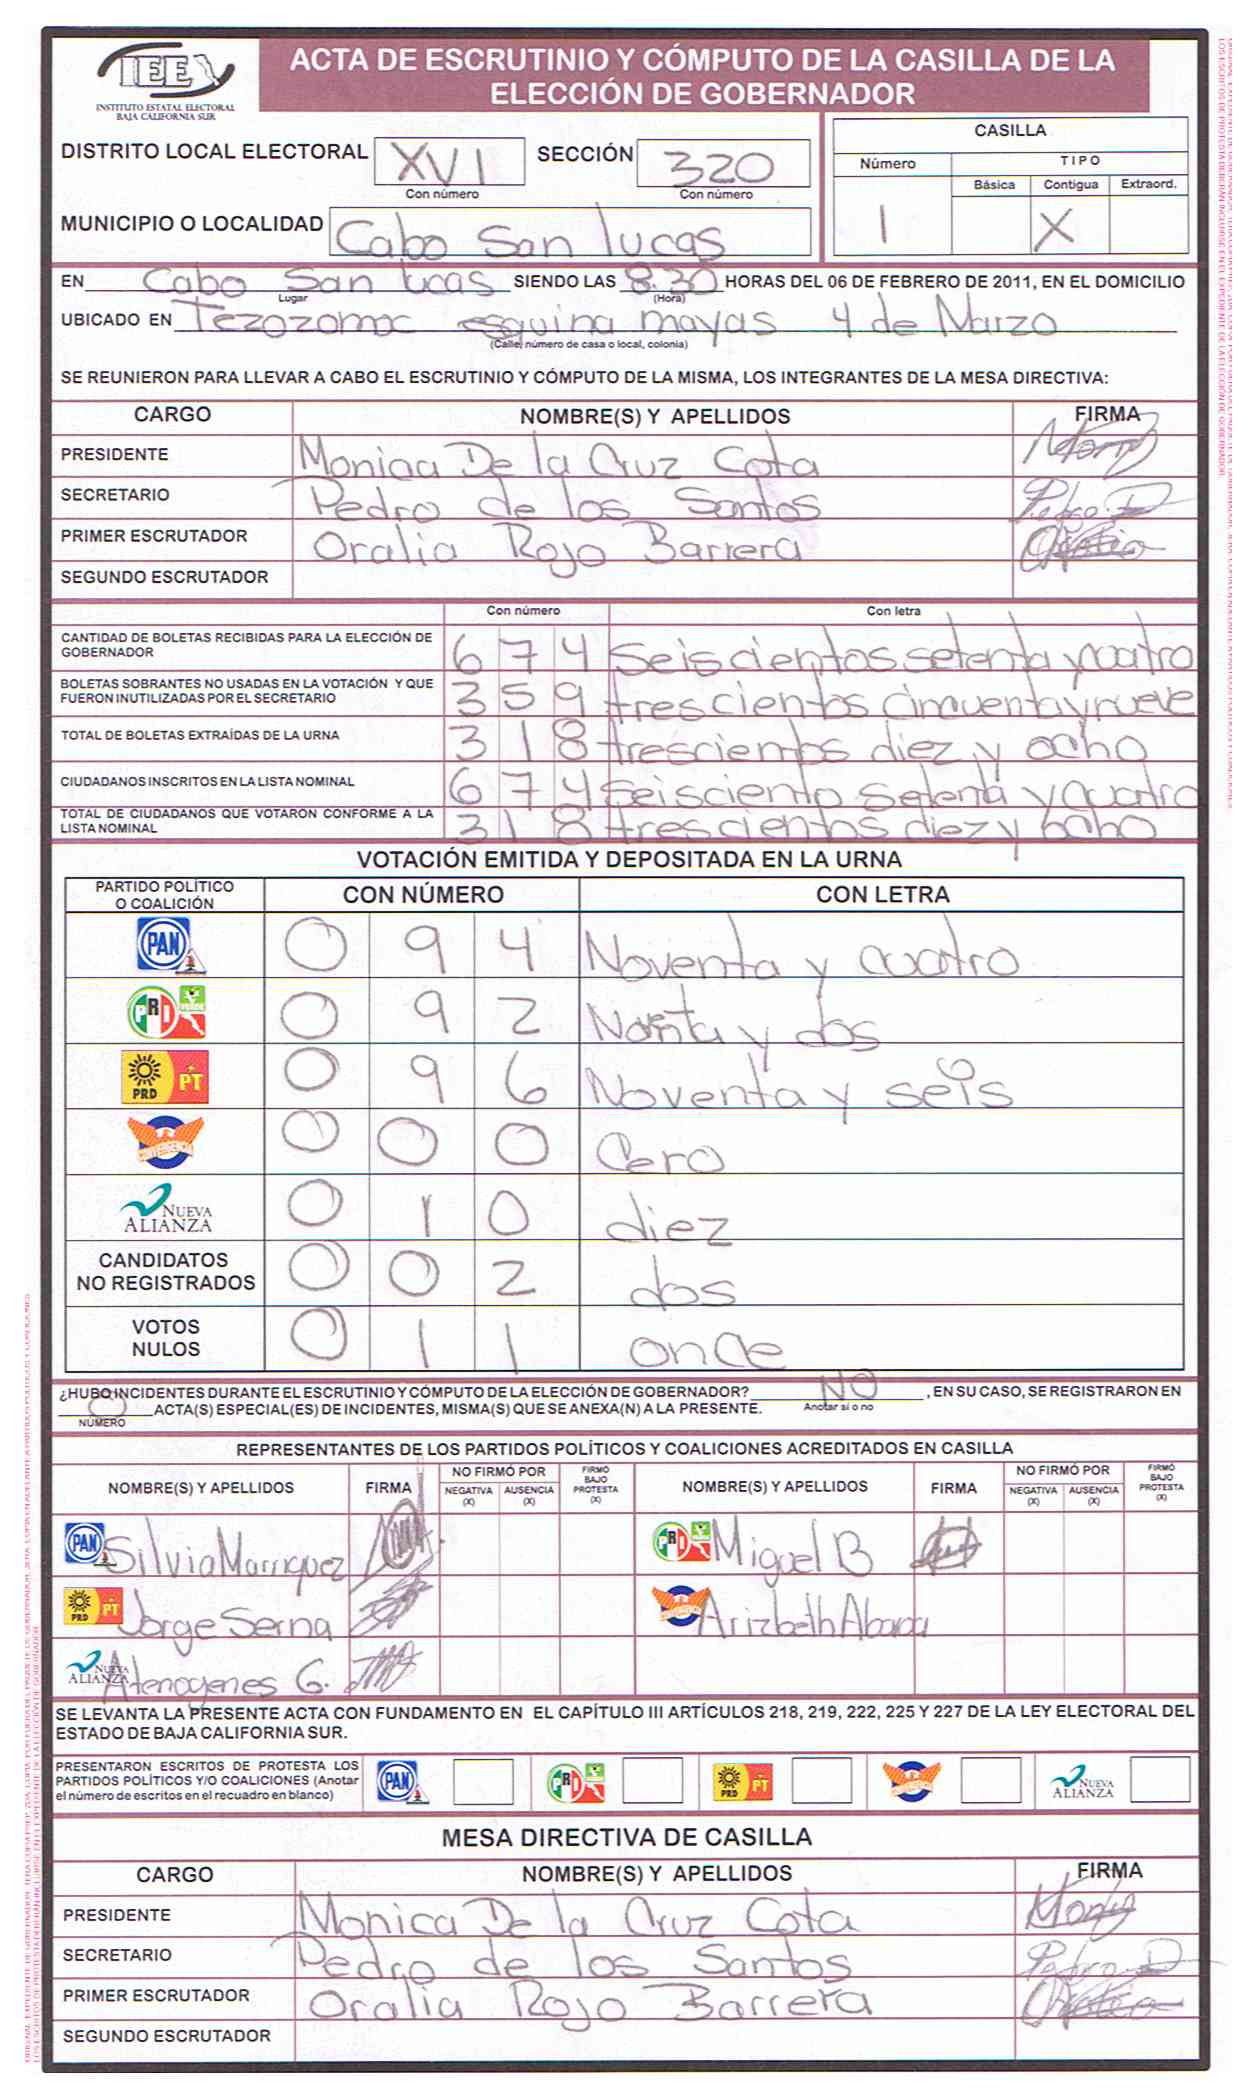 IEE
INSTITUTO ESTATAL ELECTORAL
BAJA CALIFORNIA SUR
ACTA DE ESCRUTINIO Y CÓMPUTO DE LA CASILLA DE LA
ELECCIÓN DE GOBERNADOR
DISTRITO LOCAL ELECTORAL XVI SECCIÓN 320
Con número Con número
MUNICIPIO O LOCALIDAD Cabo San lucas
CASILLA
Número TIPO
Básica Contigua Extraord.
1 X
EN Cabo San lucas SIENDO LAS 8:30 HORAS DEL 06 DE FEBRERO DE 2011, EN EL DOMICILIO
Lugar (Hora)
UBICADO EN Tezozomoc esquina mayas 4 de Marzo
(Calle, número de casa o local, colonia)
SE REUNIERON PARA LLEVAR A CABO EL ESCRUTINIO Y CÓMPUTO DE LA MISMA, LOS INTEGRANTES DE LA MESA DIRECTIVA:
CARGO NOMBRE(S) Y APELLIDOS FIRMA
PRESIDENTE Monica De la Cruz Cota
SECRETARIO Pedro de los Santos
PRIMER ESCRUTADOR Oralia Rojo Barrera
SEGUNDO ESCRUTADOR
Con número Con letra
CANTIDAD DE BOLETAS RECIBIDAS PARA LA ELECCIÓN DE
GOBERNADOR 674 Seiscientos setenta y cuatro
BOLETAS SOBRANTES NO USADAS EN LA VOTACIÓN Y QUE
FUERON INUTILIZADAS POR EL SECRETARIO 359 trescientos cincuenta y nueve
TOTAL DE BOLETAS EXTRAÍDAS DE LA URNA 318 trescientos diez y ocho
CIUDADANOS INSCRITOS EN LA LISTA NOMINAL 674 Seisciento setenta y cuatro
TOTAL DE CIUDADANOS QUE VOTARON CONFORME A LA
LISTA NOMINAL 318 trescientos diez y ocho
VOTACIÓN EMITIDA Y DEPOSITADA EN LA URNA
PARTIDO POLÍTICO
O COALICIÓN CON NÚMERO CON LETRA
PAN 0 9 4 Noventa y cuatro
PRI VERDE 0 9 2 y dos
PRD PT 0 9 6 Noventa y seis
CONVERGENCIA 0 0 0 Cero
NUEVA ALIANZA 0 1 0 diez
CANDIDATOS
NO REGISTRADOS 0 0 2 dos
VOTOS
NULOS 0 1 1 once
¿HUBO INCIDENTES DURANTE EL ESCRUTINIO Y CÓMPUTO DE LA ELECCIÓN DE GOBERNADOR? NO , EN SU CASO, SE REGISTRARON EN
0 ACTA(S) ESPECIAL(ES) DE INCIDENTES, MISMA(S) QUE SE ANEXA(N) A LA PRESENTE. Anotar sí o no
NÚMERO
REPRESENTANTES DE LOS PARTIDOS POLÍTICOS Y COALICIONES ACREDITADOS EN CASILLA
NOMBRE(S) Y APELLIDOS FIRMA NO FIRMÓ POR NEGATIVA (X) AUSENCIA (X) FIRMÓ BAJO PROTESTA (X) NOMBRE(S) Y APELLIDOS FIRMA NO FIRMÓ POR NEGATIVA (X) AUSENCIA (X) FIRMÓ BAJO PROTESTA (X)
PAN Silvia Manriquez PRI VERDE Miguel B
PRD PT Jorge Serna CONVERGENCIA Arizbeth
NUEVA ALIANZA Atenogenes G.
SE LEVANTA LA PRESENTE ACTA CON FUNDAMENTO EN EL CAPÍTULO III ARTÍCULOS 218, 219, 222, 225 Y 227 DE LA LEY ELECTORAL DEL
ESTADO DE BAJA CALIFORNIA SUR.
PRESENTARON ESCRITOS DE PROTESTA LOS
PARTIDOS POLÍTICOS Y/O COALICIONES (Anotar
el número de escritos en el recuadro en blanco)
PAN PRI VERDE PRD PT CONVERGENCIA NUEVA ALIANZA
MESA DIRECTIVA DE CASILLA
CARGO NOMBRE(S) Y APELLIDOS FIRMA
PRESIDENTE Monica De la Cruz Cota
SECRETARIO Pedro de los Santos
PRIMER ESCRUTADOR Oralia Rojo Barrera
SEGUNDO ESCRUTADOR